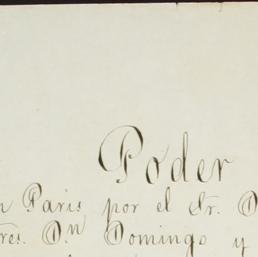 Poder
n Paris por el Sr. D
res. Dn Domingo y